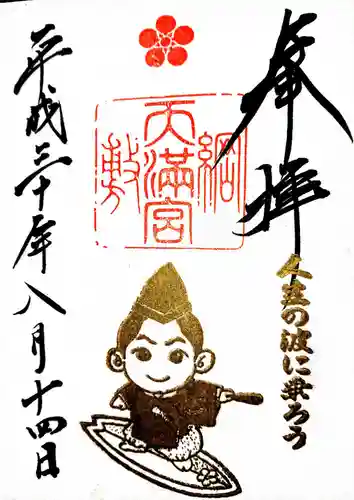 奉拝
人生の波に乗ろう
綱
天満宮
敷
平成三十年八月十四日